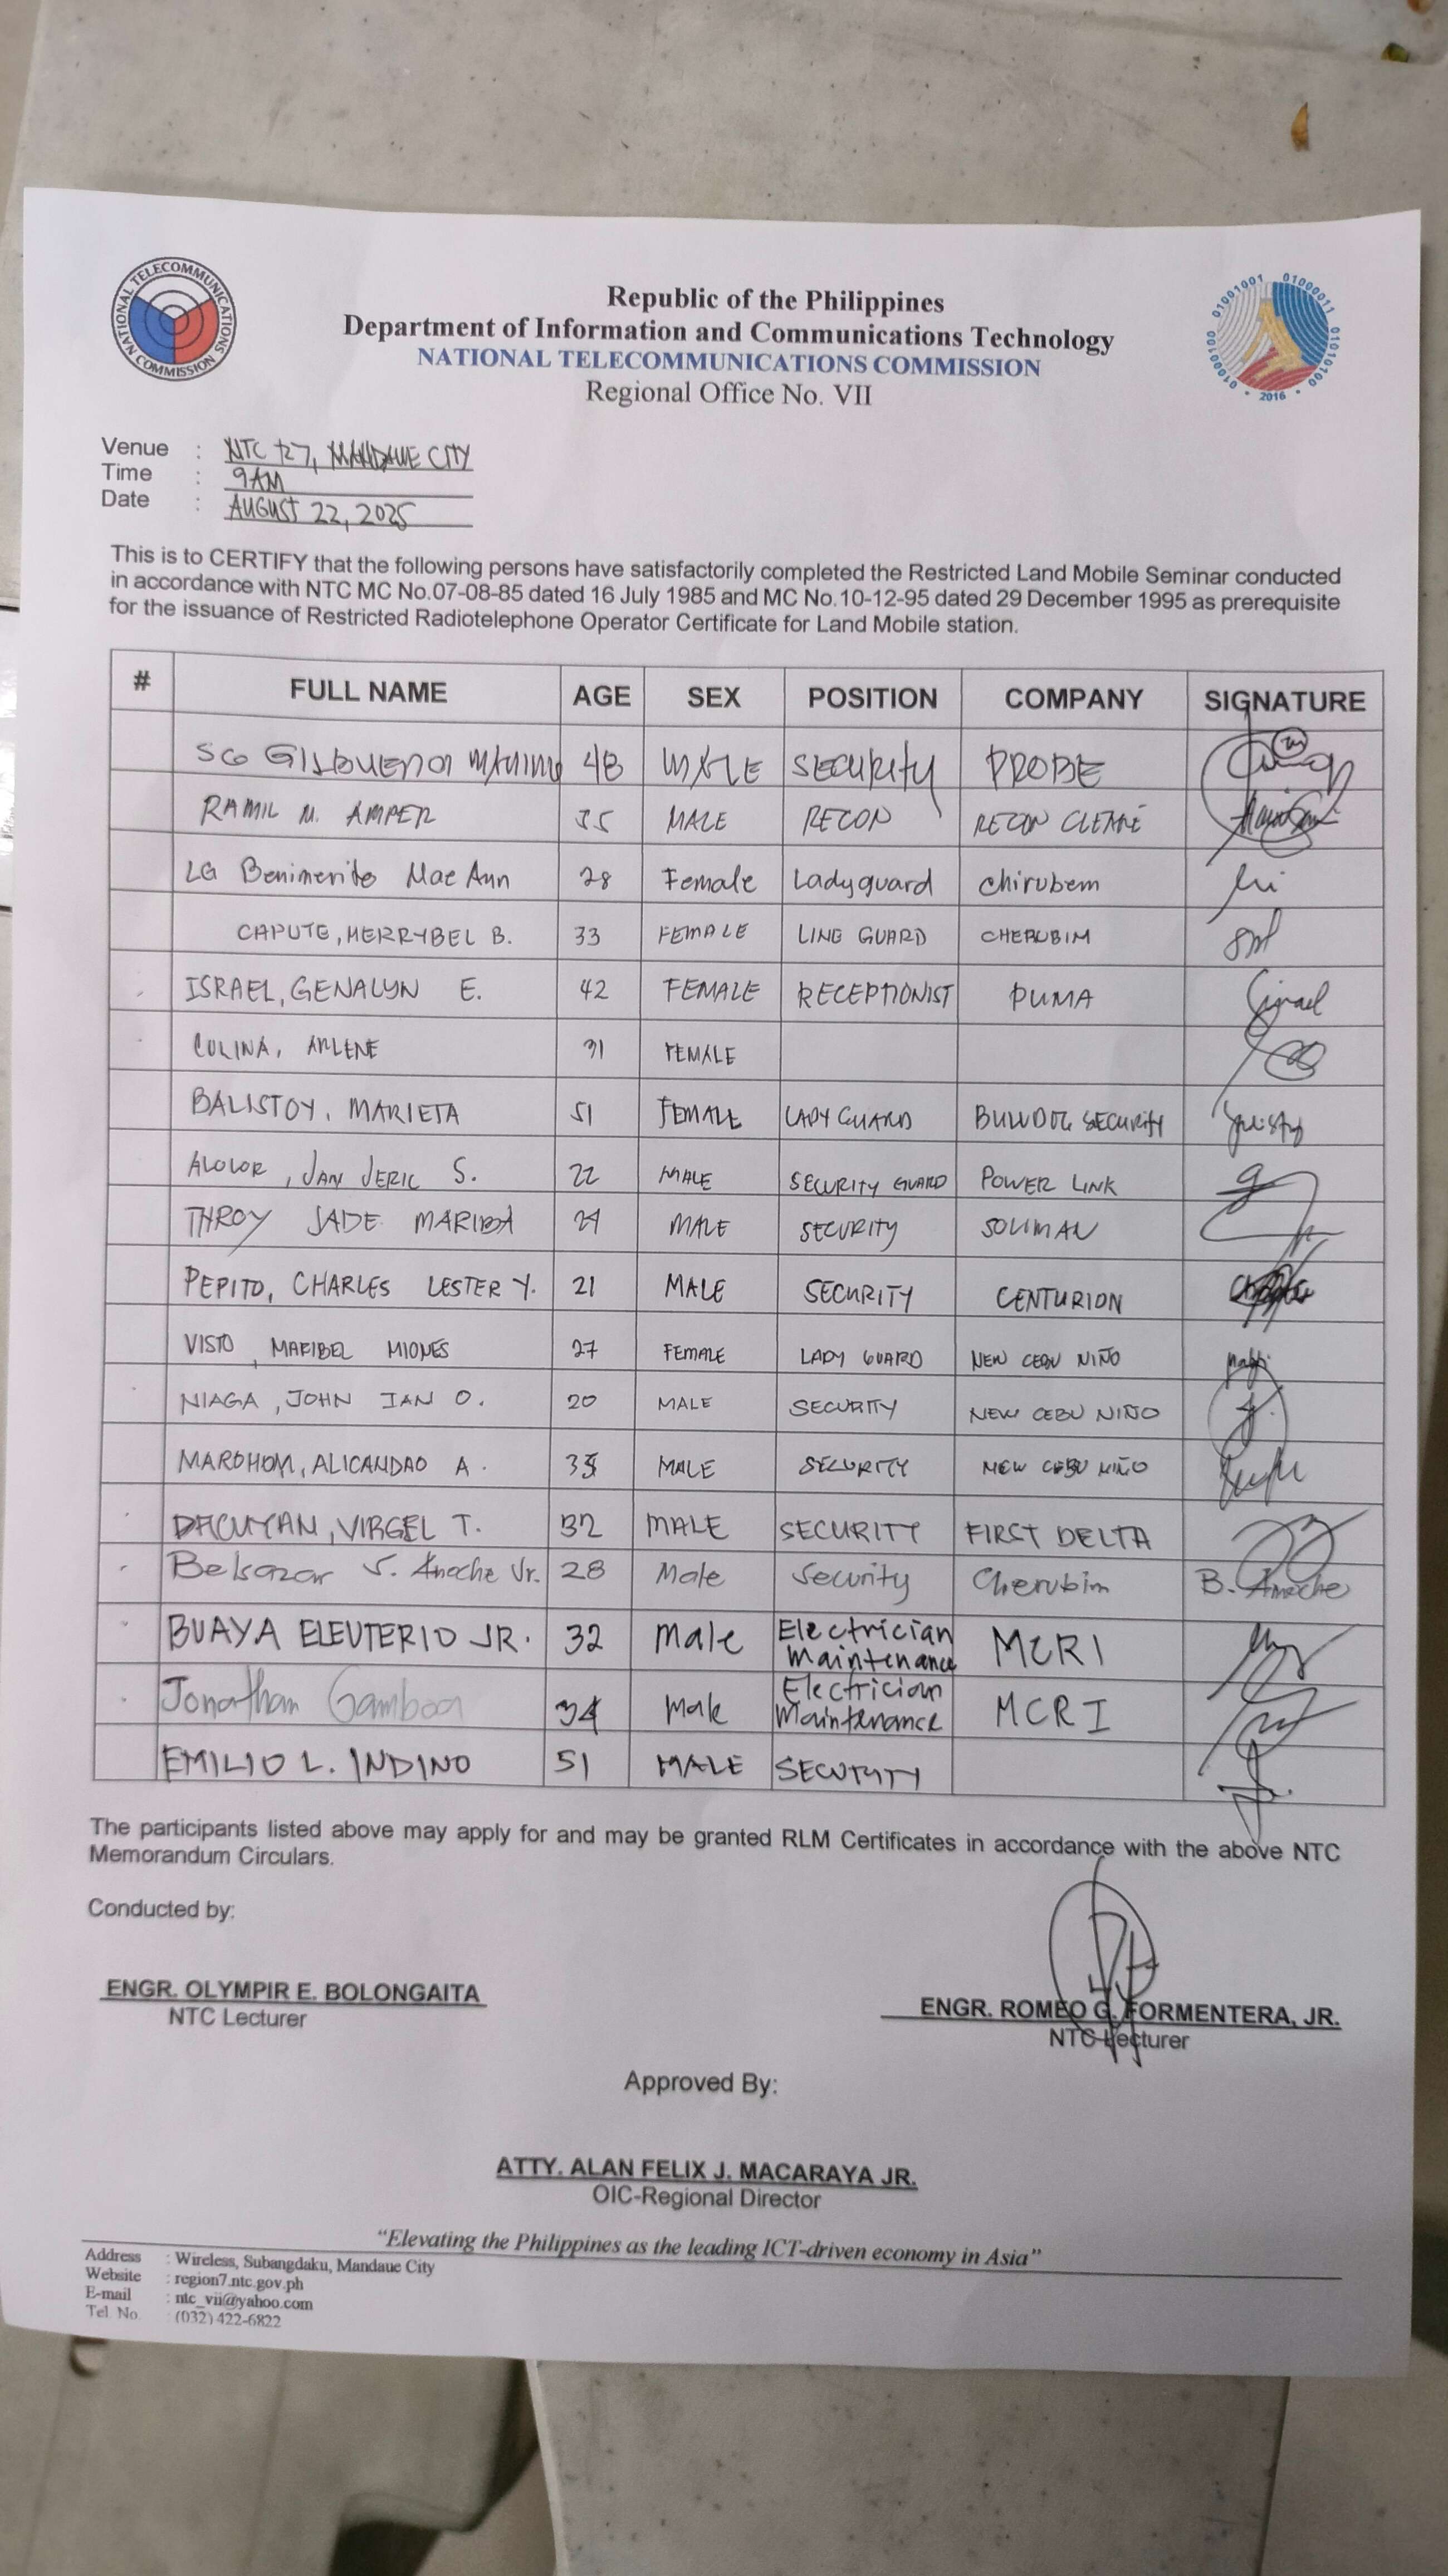 NATIONAL TELECOMMUNICATIONS COMMISSION
01000100 01001001 01000011 01010100
2016
Republic of the Philippines
Department of Information and Communications Technology
NATIONAL TELECOMMUNICATIONS COMMISSION
Regional Office No. VII
Venue : NTC MANDAUE CITY
Time : 9AM
Date : AUGUST 22, 2025
This is to CERTIFY that the following persons have satisfactorily completed the Restricted Land Mobile Seminar conducted
in accordance with NTC MC No.07-08-85 dated 16 July 1985 and MC No.10-12-95 dated 29 December 1995 as prerequisite
for the issuance of Restricted Radiotelephone Operator Certificate for Land Mobile station.
# FULL NAME AGE SEX POSITION COMPANY SIGNATURE
SG 48 MALE SECURITY PROBE
RAMIL M. AMPER 35 MALE RECON RECON
LG Benimerito Mae Ann 28 Female Ladyguard chirubem
CAPUTE, MERRYBEL B. 33 FEMALE GUARD CHERUBIM
ISRAEL, GENALYN E. 42 FEMALE RECEPTIONIST PUMA
COLINA, ARLENE 31 FEMALE
BALISTOY, MARIETA 51 FEMALE LADY GUARD BULLDOG SECURITY
JAN JERIC S. 22 MALE SECURITY GUARD POWER LINK
THROY JADE MALE SECURITY SOLIMAN
PEPITO, CHARLES LESTER Y. 21 MALE SECURITY CENTURION
VISTO, MARIBEL MIONES 27 FEMALE LADY GUARD NEW CEBU NIÑO
NIAGA, JOHN IAN O. 20 MALE SECURITY NEW CEBU NIÑO
MAROHOM, ALICANDAO A. MALE SECURITY NEW CEBU NIÑO
DACUYAN, VIRGEL T. 32 MALE SECURITY FIRST DELTA
Belsazar S. Anoche Jr. 28 Male Security Cherubim B. Anoche
BUAYA ELEUTERIO JR. 32 Male Electrician Maintenance MCRI
Jonathan Gamboa 34 Male Electrician Maintenance MCRI
EMILIO L. INDINO 51 MALE SECURITY
The participants listed above may apply for and may be granted RLM Certificates in accordance with the above NTC
Memorandum Circulars.
Conducted by:
ENGR. OLYMPIR E. BOLONGAITA
NTC Lecturer
ENGR. ROMEO G. FORMENTERA, JR.
NTC Lecturer
Approved By:
ATTY. ALAN FELIX J. MACARAYA JR.
OIC-Regional Director
“Elevating the Philippines as the leading ICT-driven economy in Asia”
Address : Wireless, Subangdaku, Mandaue City
Website : region7.ntc.gov.ph
E-mail : ntc_vii@yahoo.com
Tel. No. : (032) 422-6822